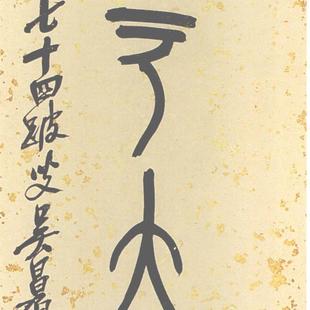 于大
七十四跛叟吳昌